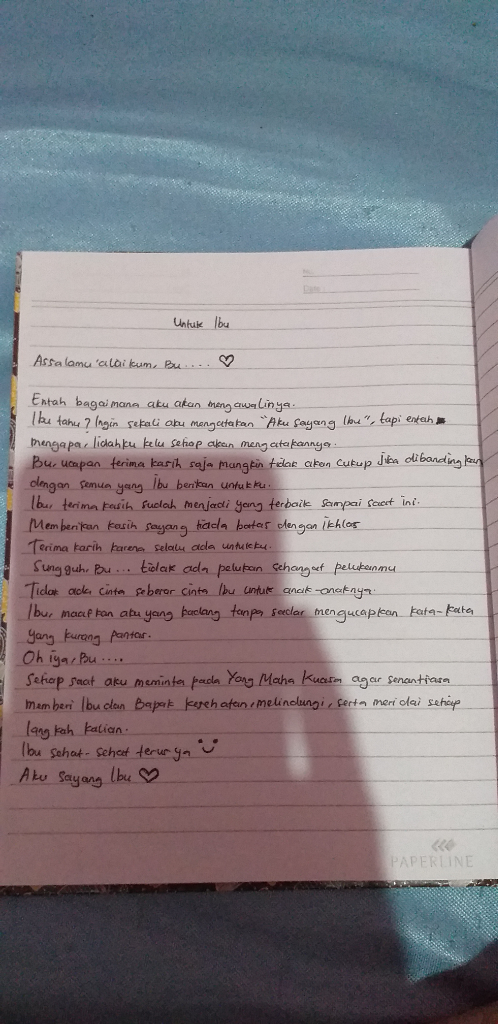 No.
Date
Untuk Ibu
Assalamu'alaikum, Bu .... ♡
Entah bagaimana aku akan mengawalinya.
Ibu tahu? Ingin sekali aku mengatakan "Aku sayang Ibu", tapi entah
mengapa, lidahku kelu setiap akan mengatakannya.
Bu, ucapan terima kasih saja mungkin tidak akan cukup jika dibandingkan
dengan semua yang Ibu berikan untukku.
Ibu, terima kasih sudah menjadi yang terbaik sampai saat ini.
Memberikan kasih sayang tiada batas dengan ikhlas
Terima kasih karena selalu ada untukku.
Sungguh, Bu ... tidak ada pelukan sehangat pelukanmu
Tidak ada cinta sebesar cinta Ibu untuk anak-anaknya.
Ibu, maafkan aku yang kadang tanpa sadar mengucapkan kata-kata
yang kurang pantas.
Oh iya, Bu ....
Setiap saat aku meminta pada Yang Maha Kuasa agar senantiasa
memberi Ibu dan Bapak kesehatan, melindungi, serta meridai setiap
langkah kalian.
Ibu sehat-sehat terus ya
Aku sayang Ibu ♡
PAPERLINE